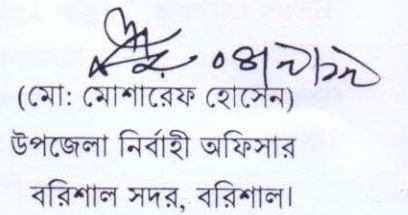 (মো: মোশারেফ হোসেন)
উপজেলা নির্বাহী অফিসার
বরিশাল সদর, বরিশাল।